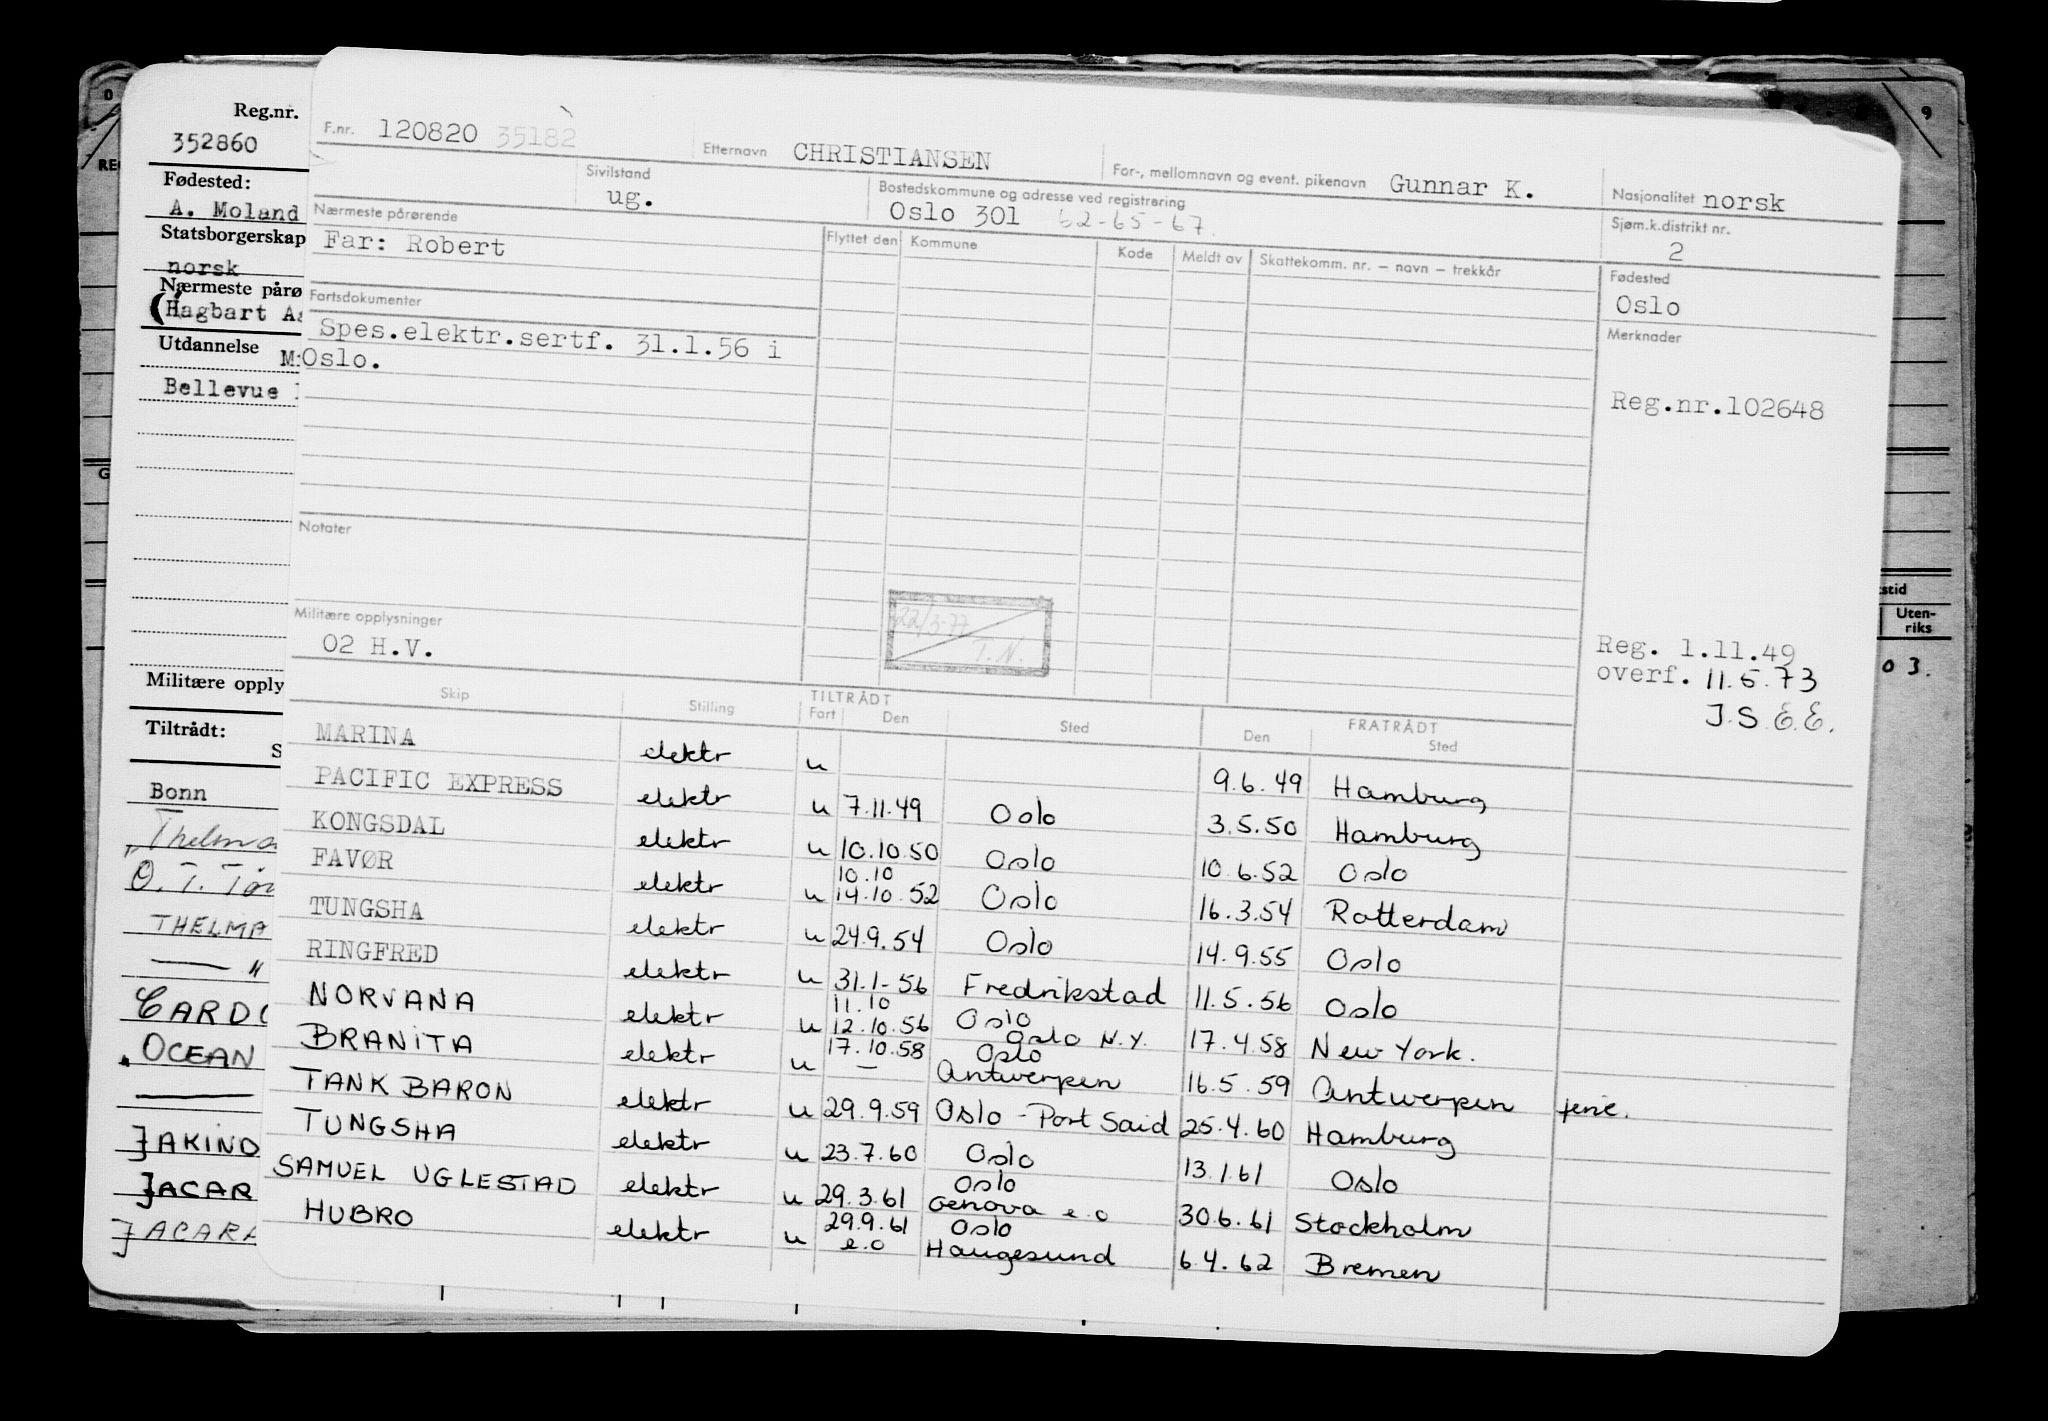 Reg.nr.
352860
Fødested:
A. Moland
Statsborgerskap
norsk
Nærmeste pårø
(Hagbart As
Utdannelse
M
Bellevue
Militære opply
Tiltrådt:
S
Bonn
Thelma
O. T. Tøn
THELMA
— " 
CARDO
OCEAN
JAKIND
JACAR
JACARA
F.nr. 120820 35182
Etternavn CHRISTIANSEN
For-, mellomnavn og event. pikenavn Gunnar K.
Nasjonalitet norsk
Sivilstand
ug.
Bostedskommune og adresse ved registrering
Oslo 301 62-65-67.
Sjøm.k.distrikt nr.
2
Nærmeste pårørende
Far: Robert
Flyttet den Kommune Kode Meldt av Skattekomm. nr. – navn – trekkår
Fødested
Oslo
Fartsdokumenter
Spes.elektr.sertf. 31.1.56 i
Oslo.
Merknader
Reg.nr.102648
Notater
22/3-77
T.N.
Militære opplysninger
02 H.V.
Reg. 1.11.49
overf. 11.5.73
J.S.E.E.
Skip Stilling TILTRÅDT FRATRÅDT
Fart Den Sted Den Sted
MARINA elektr u 9.6.49 Hamburg
PACIFIC EXPRESS elektr u 7.11.49 Oslo 3.5.50 Hamburg
KONGSDAL elektr u 10.10.50 Oslo 10.6.52 Oslo
FAVØR elektr u 10.10 14.10.52 Oslo 16.3.54 Rotterdam
TUNGSHA elektr u 24.9.54 Oslo 14.9.55 Oslo
RINGFRED elektr u 31.1-56 Fredrikstad 11.5.56 Oslo
NORVANA elektr u 11.10 12.10.56 Oslo Oslo N.Y. 17.4.58 New York.
BRANITA elektr u 17.10.58 — Oslo Antwerpen 16.5.59 Antwerpen ferie.
TANK BARON elektr u 29.9.59 Oslo - Port Said 25.4.60 Hamburg
TUNGSHA elektr u 23.7.60 Oslo 13.1.61 Oslo
SAMUEL UGLESTAD elektr u 29.3.61 Oslo Genova e.o 30.6.61 Stockholm
HUBRO elektr u 29.9.61 e.o Oslo Haugesund 6.4.62 Bremen
9
stid
Uten-
riks
03.